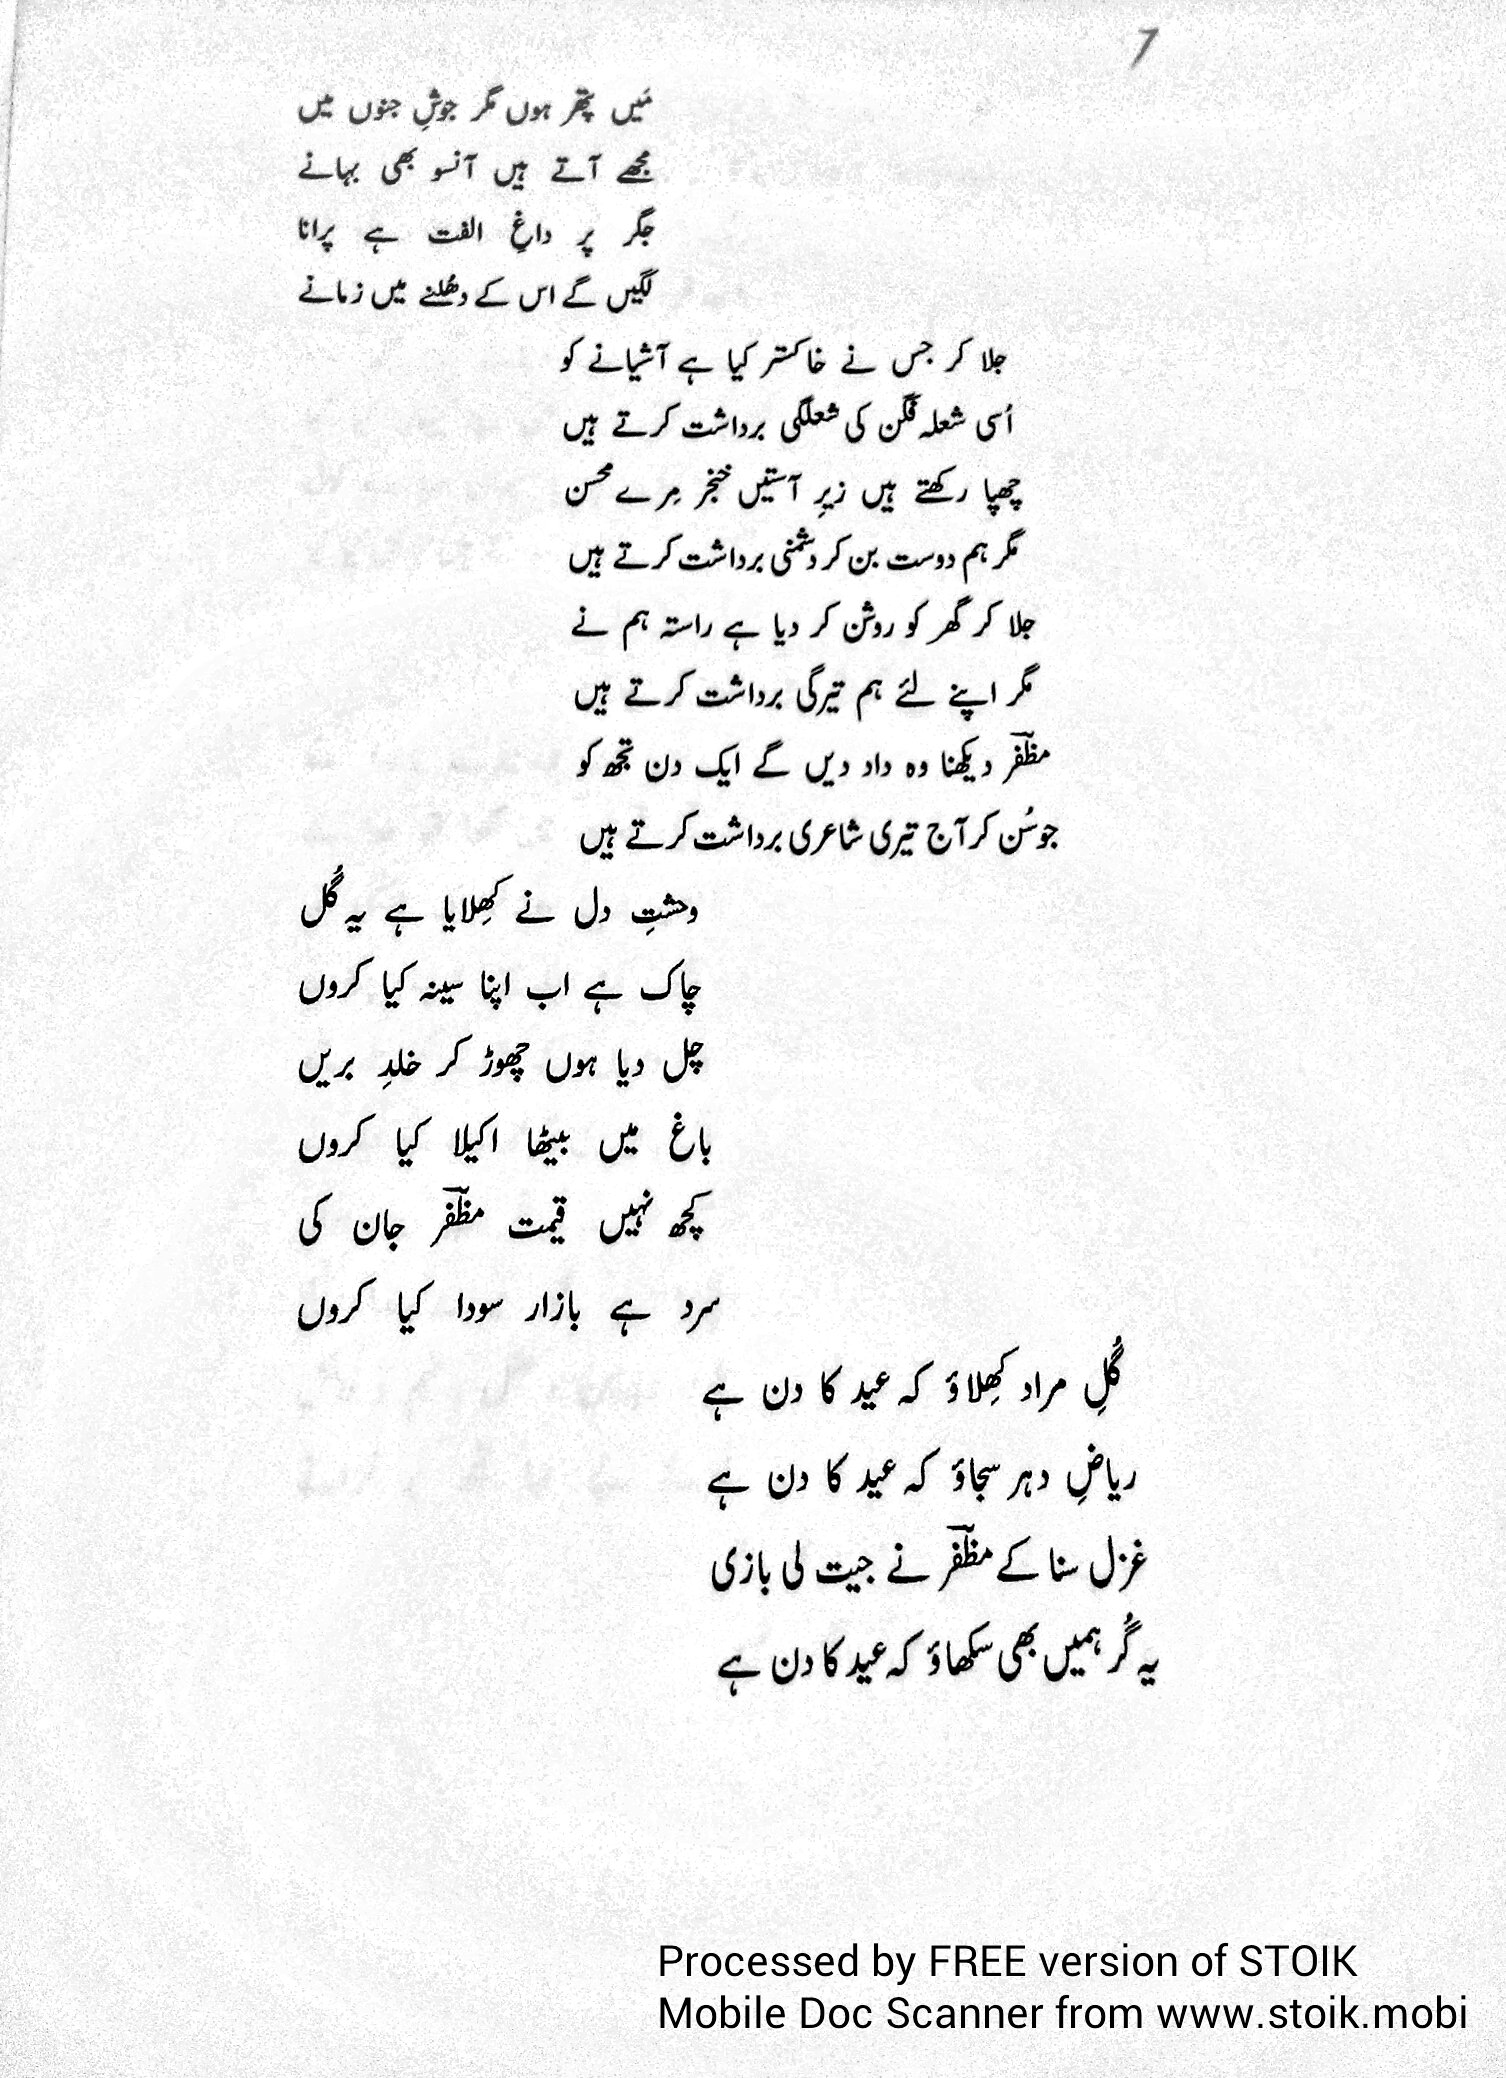 7
مَیں پتھر ہوں مگر جوشِ جنوں میں
مجھے آتے ہیں آنسو بھی بہانے
جگر پر داغِ الفت ہے پرانا
لگیں گے اس کے دھُلنے میں زمانے
جلا کر جس نے خاکستر کیا ہے آشیانے کو
اُسی شعلہ فگن کی شعلگی برداشت کرتے ہیں
چھپا رکھتے ہیں زیرِ آستیں خنجر مِرے محسن
مگر ہم دوست بن کر دشمنی برداشت کرتے ہیں
جلا کر گھر کو روشن کر دیا ہے راستہ ہم نے
مگر اپنے لئے ہم تیرگی برداشت کرتے ہیں
مظفؔر دیکھنا وہ داد دیں گے ایک دن تجھ کو
جو سُن کر آج تیری شاعری برداشت کرتے ہیں
وحشتِ دل نے کھِلایا ہے یہ گُل
چاک ہے اب اپنا سینہ کیا کروں
چل دیا ہوں چھوڑ کر خلدِ بریں
باغ میں بیٹھا اکیلا کیا کروں
کچھ نہیں قیمت مظفؔر جان کی
سرد ہے بازار سودا کیا کروں
گُلِ مراد کھِلاؤ کہ عید کا دن ہے
ریاضِ دہر سجاؤ کہ عید کا دن ہے
غزل سنا کے مظفؔر نے جیت لی بازی
یہ گُر ہمیں بھی سکھاؤ کہ عید کا دن ہے
Processed by FREE version of STOIK
Mobile Doc Scanner from www.stoik.mobi